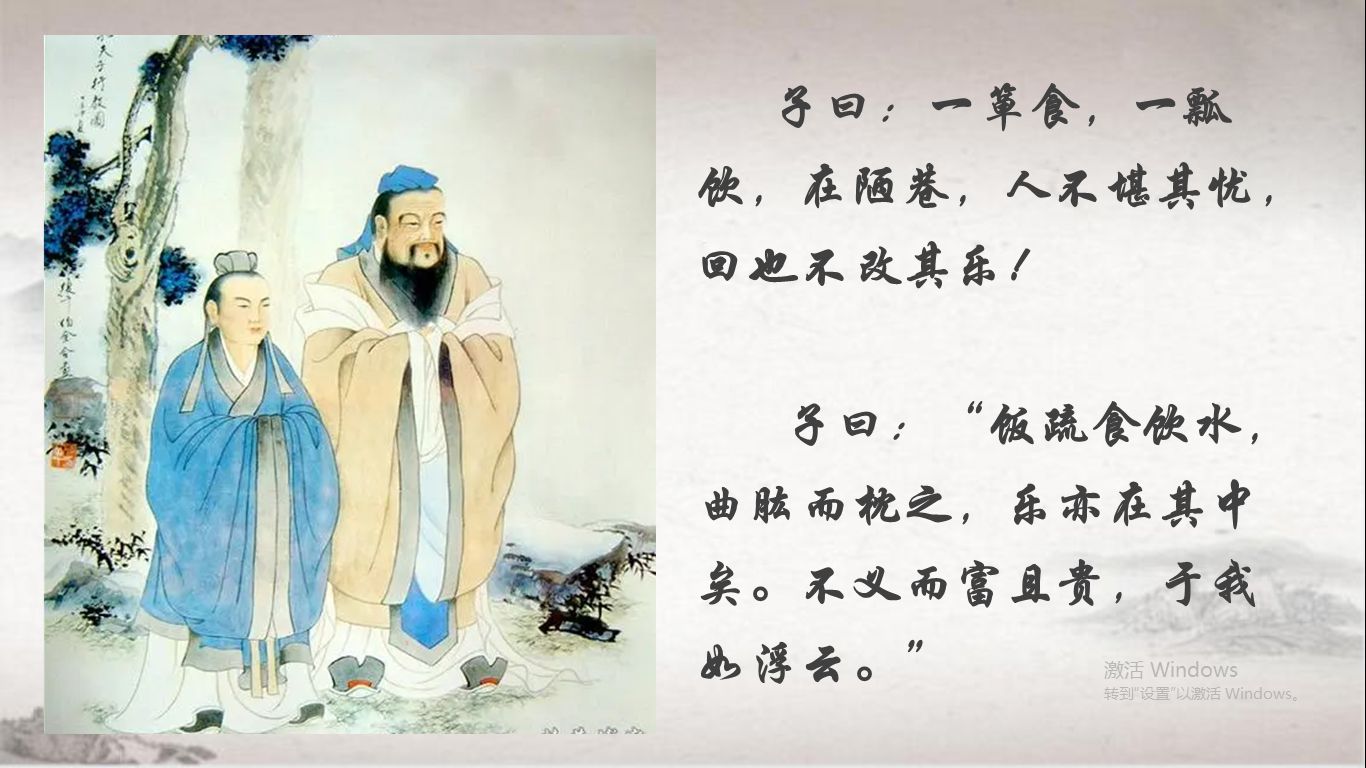 子曰：一箪食，一瓢
饮，在陋巷，人不堪其忧，
回也不改其乐！
子曰：“饭疏食饮水，
曲肱而枕之，乐亦在其中
矣。不义而富且贵，于我
如浮云。”
夫子行教图
激活 Windows
转到“设置”以激活 Windows。